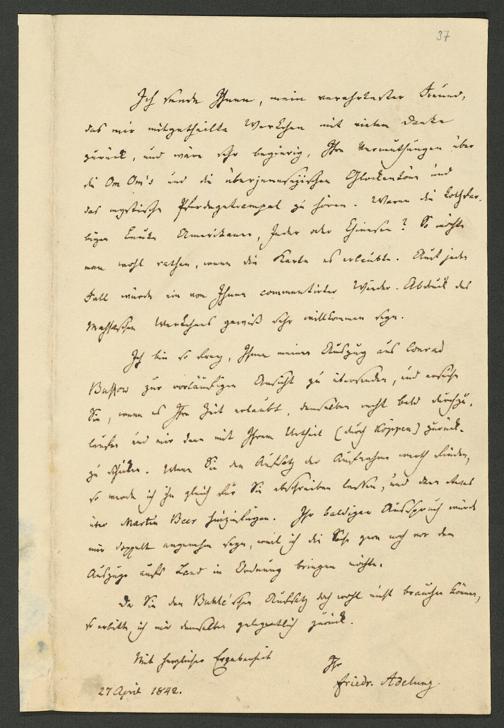 37
Ich sende Ihnen, mein verehrtester Freund,
das mir mitgetheilte Werkchen mit vielem Danke
zurück, und wäre sehr begierig, Ihre Vermuthungen über
die Om Om's und die überjenneseischen Glockentöne und
das mystische Pferdegetrampel zu hören. Waren die rothfar-
bigen Leute Amerikaner, Inder oder Chinesen? So möchte
man wohl rathen, wenn die Karte es erlaubte. Auf jeden
Fall würde ein von Ihnen commentirter Wieder-Abdruck des
Massaschen Werkchens gewiß sehr willkommen seyn.
Ich bin so frey, Ihnen meinen Auszug aus Conrad
Bussow zur vorläufigen Ansicht zu übersenden, und ersuche
Sie, wenn es Ihre Zeit erlaubt, denselben recht bald durchzu-
laufen und mir dann mit Ihrem Urtheil (durch Köppen) zurück-
zu schicken. Wenn Sie den Aufsatz der Aufnahme werth finden,
so werde ich ihn gleich für Sie abschreiben lassen, und dann etwas
über Martin Beer hinzufügen. Ihr baldiger Ausspruch würde
mir doppelt angenehm seyn, weil ich die Sache gern noch vor dem
Auszuge aufs Land in Ordnung bringen möchte.
Da Sie den Buhle'schen Aufsatz doch wohl nicht brauchen können,
so erbitte ich mir denselben gelegentlich zurück.
Mit herzlicher Ergebenheit
Ihr
Friedr. Adelung.
27 April 1842.